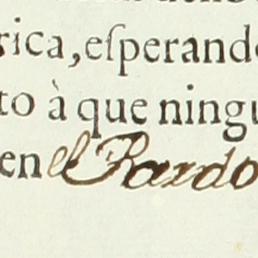 rica, eſperando
to à que ningu
en el Pardo